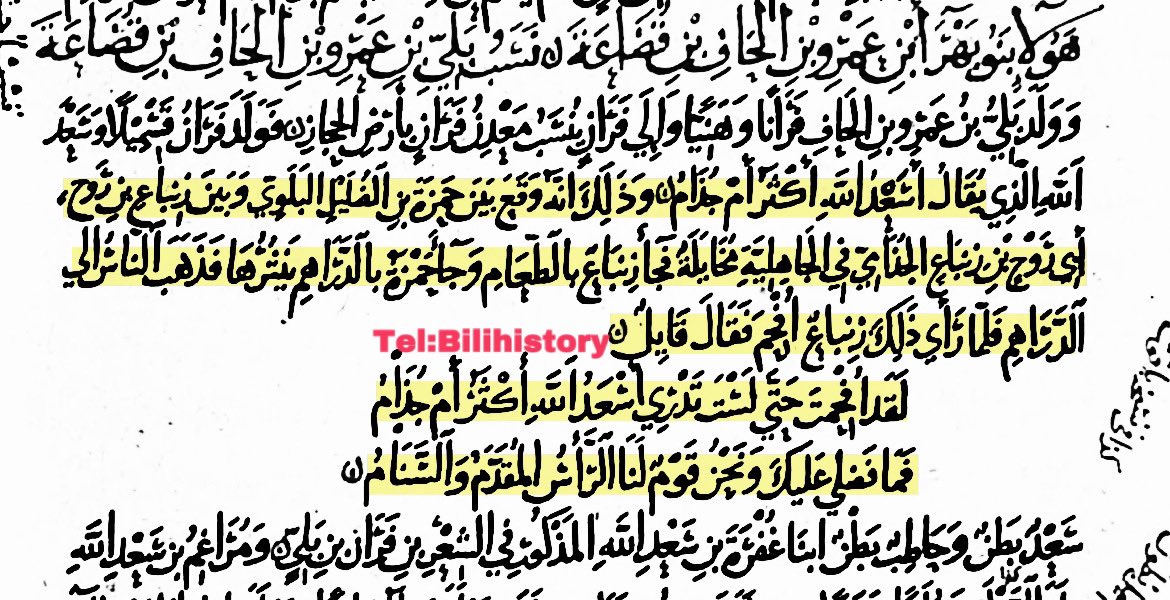 هَؤُلَا بَنُو بَهْرَا بْنِ عَمْرِو بْنِ الْحَافِ بْنِ قُضَاعَةَ ن نَسَبُ بَلِيِّ بْنِ عَمْرِو بْنِ الْحَافِ بْنِ قُضَاعَةَ
وَوَلَدَ بَلِيُّ بْنُ عَمْرِو بْنِ الْحَافِ فَرَّانًا وَهَنِيًّا وَإِلَى فَرَّانَ يُنْسَبُ مَعْدِنُ فَرَّانَ بِأَرْضِ الْحِجَازِ ن فَوَلَدَ فَرَّانُ قِسْمِيلًا وَسَعْدَ
اللهِ الَّذِي يُقَالُ أَسَعْدُ اللهِ أَكْثَرُ أَمْ جُذَامُ ن وَذَلِكَ أَنَّهُ وَقَعَ بَيْنَ حَمْزَةَ بْنِ الضُّلَيْلِ الْبَلَوِيِّ وَبَيْنَ زِنْبَاعِ بْنِ رَوْحٍ
أَبِي رَوْحِ بْنِ زِنْبَاعٍ الْجُذَامِيِّ فِي الْجَاهِلِيَّةِ مُخَايَلَةٌ فَجَا زِنْبَاعٌ بِالطَّعَامِ وَجَا حَمْزَةُ بِالدَّرَاهِمِ يَنْثُرُهَا فَذَهَبَ النَّاسُ إِلَى
الدَّرَاهِمِ فَلَمَّا رَأَى ذَلِكَ زِنْبَاعٌ أُفْحِمَ فَقَالَ قَايِلٌ ن
Tel:Bilihistory
لَقَدْ أُفْحِمْتَ حَتَّى لَسْتَ تَدْرِي أَسَعْدُ اللهِ أَكْثَرُ أَمْ جُذَامُ
فَمَا فَضْلِي عَلَيْكَ وَنَحْنُ قَوْمٌ لَنَا الرَّأْسُ الْمُقَدَّمُ وَالسَّنَامُ ن
سَعْدٌ بَطْنٌ وَحَاطِبٌ بَطْنٌ ابْنَا غُفْرَةَ بْنِ سَعْدِ اللهِ الْمَذْكُورِ فِي الشِّعْرِ بْنِ فَرَّانَ بْنِ بَلِيٍّ ن وَمُرَاغِمُ بْنُ سَعْدِ اللهِ